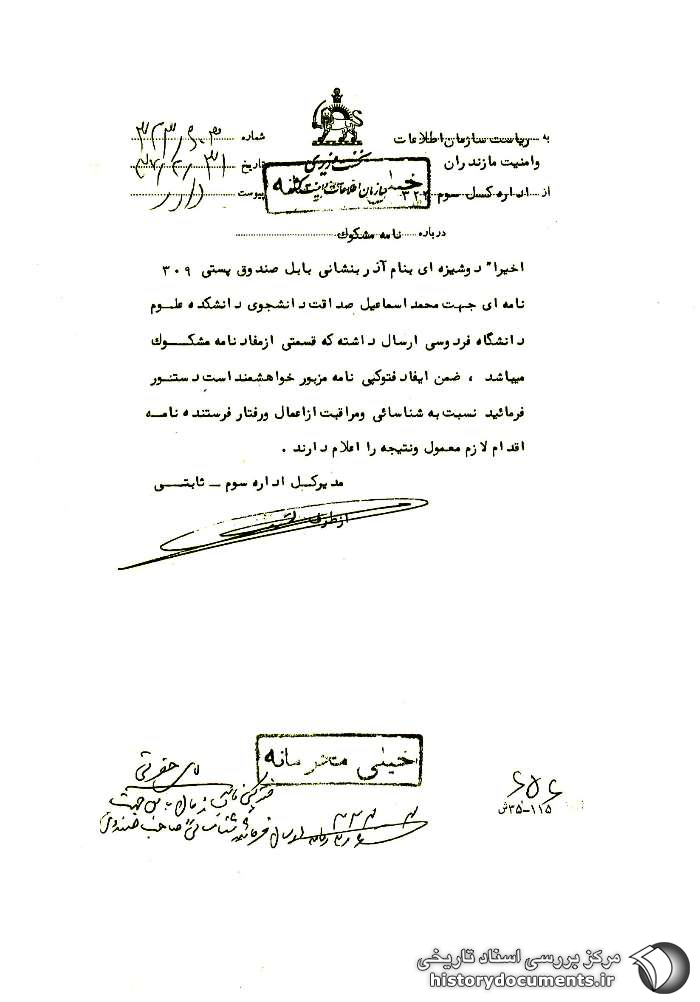 به ریاست سازمان اطلاعات
وامنیت مازندران
از اداره کسل سوم ۳۲۲
نخست وزیری
سازمان اطلاعات
خیلی محرمانه
شماره
تاریخ
پیوست
درباره نامه مشکوك
اخیرا" دوشیزه ای بنام آذر بنشانی بابل صندوق پستی ۳۰۹
نامه ای جهت محمد اسماعیل صداقت دانشجوی دانشکده علوم
دانشگاه فردوسی ارسال داشته که قسمتی ازمفاد نامه مشکــوك
میباشد ، ضمن ایفاد فتوکپی نامه مزبور خواهشمند است دستور
فرمائید نسبت به شناسائی ومراقبت ازاعمال ورفتار فرستنده نامــه
اقدام لازم معمول ونتیجه را اعلام دارند .
مدیرکـل اداره سوم ـ ثابتــی
ازطرف
خیلی محرمانه
۳۵-۱۱۵ش
مرکز بررسی اسناد تاریخی
historydocuments.ir